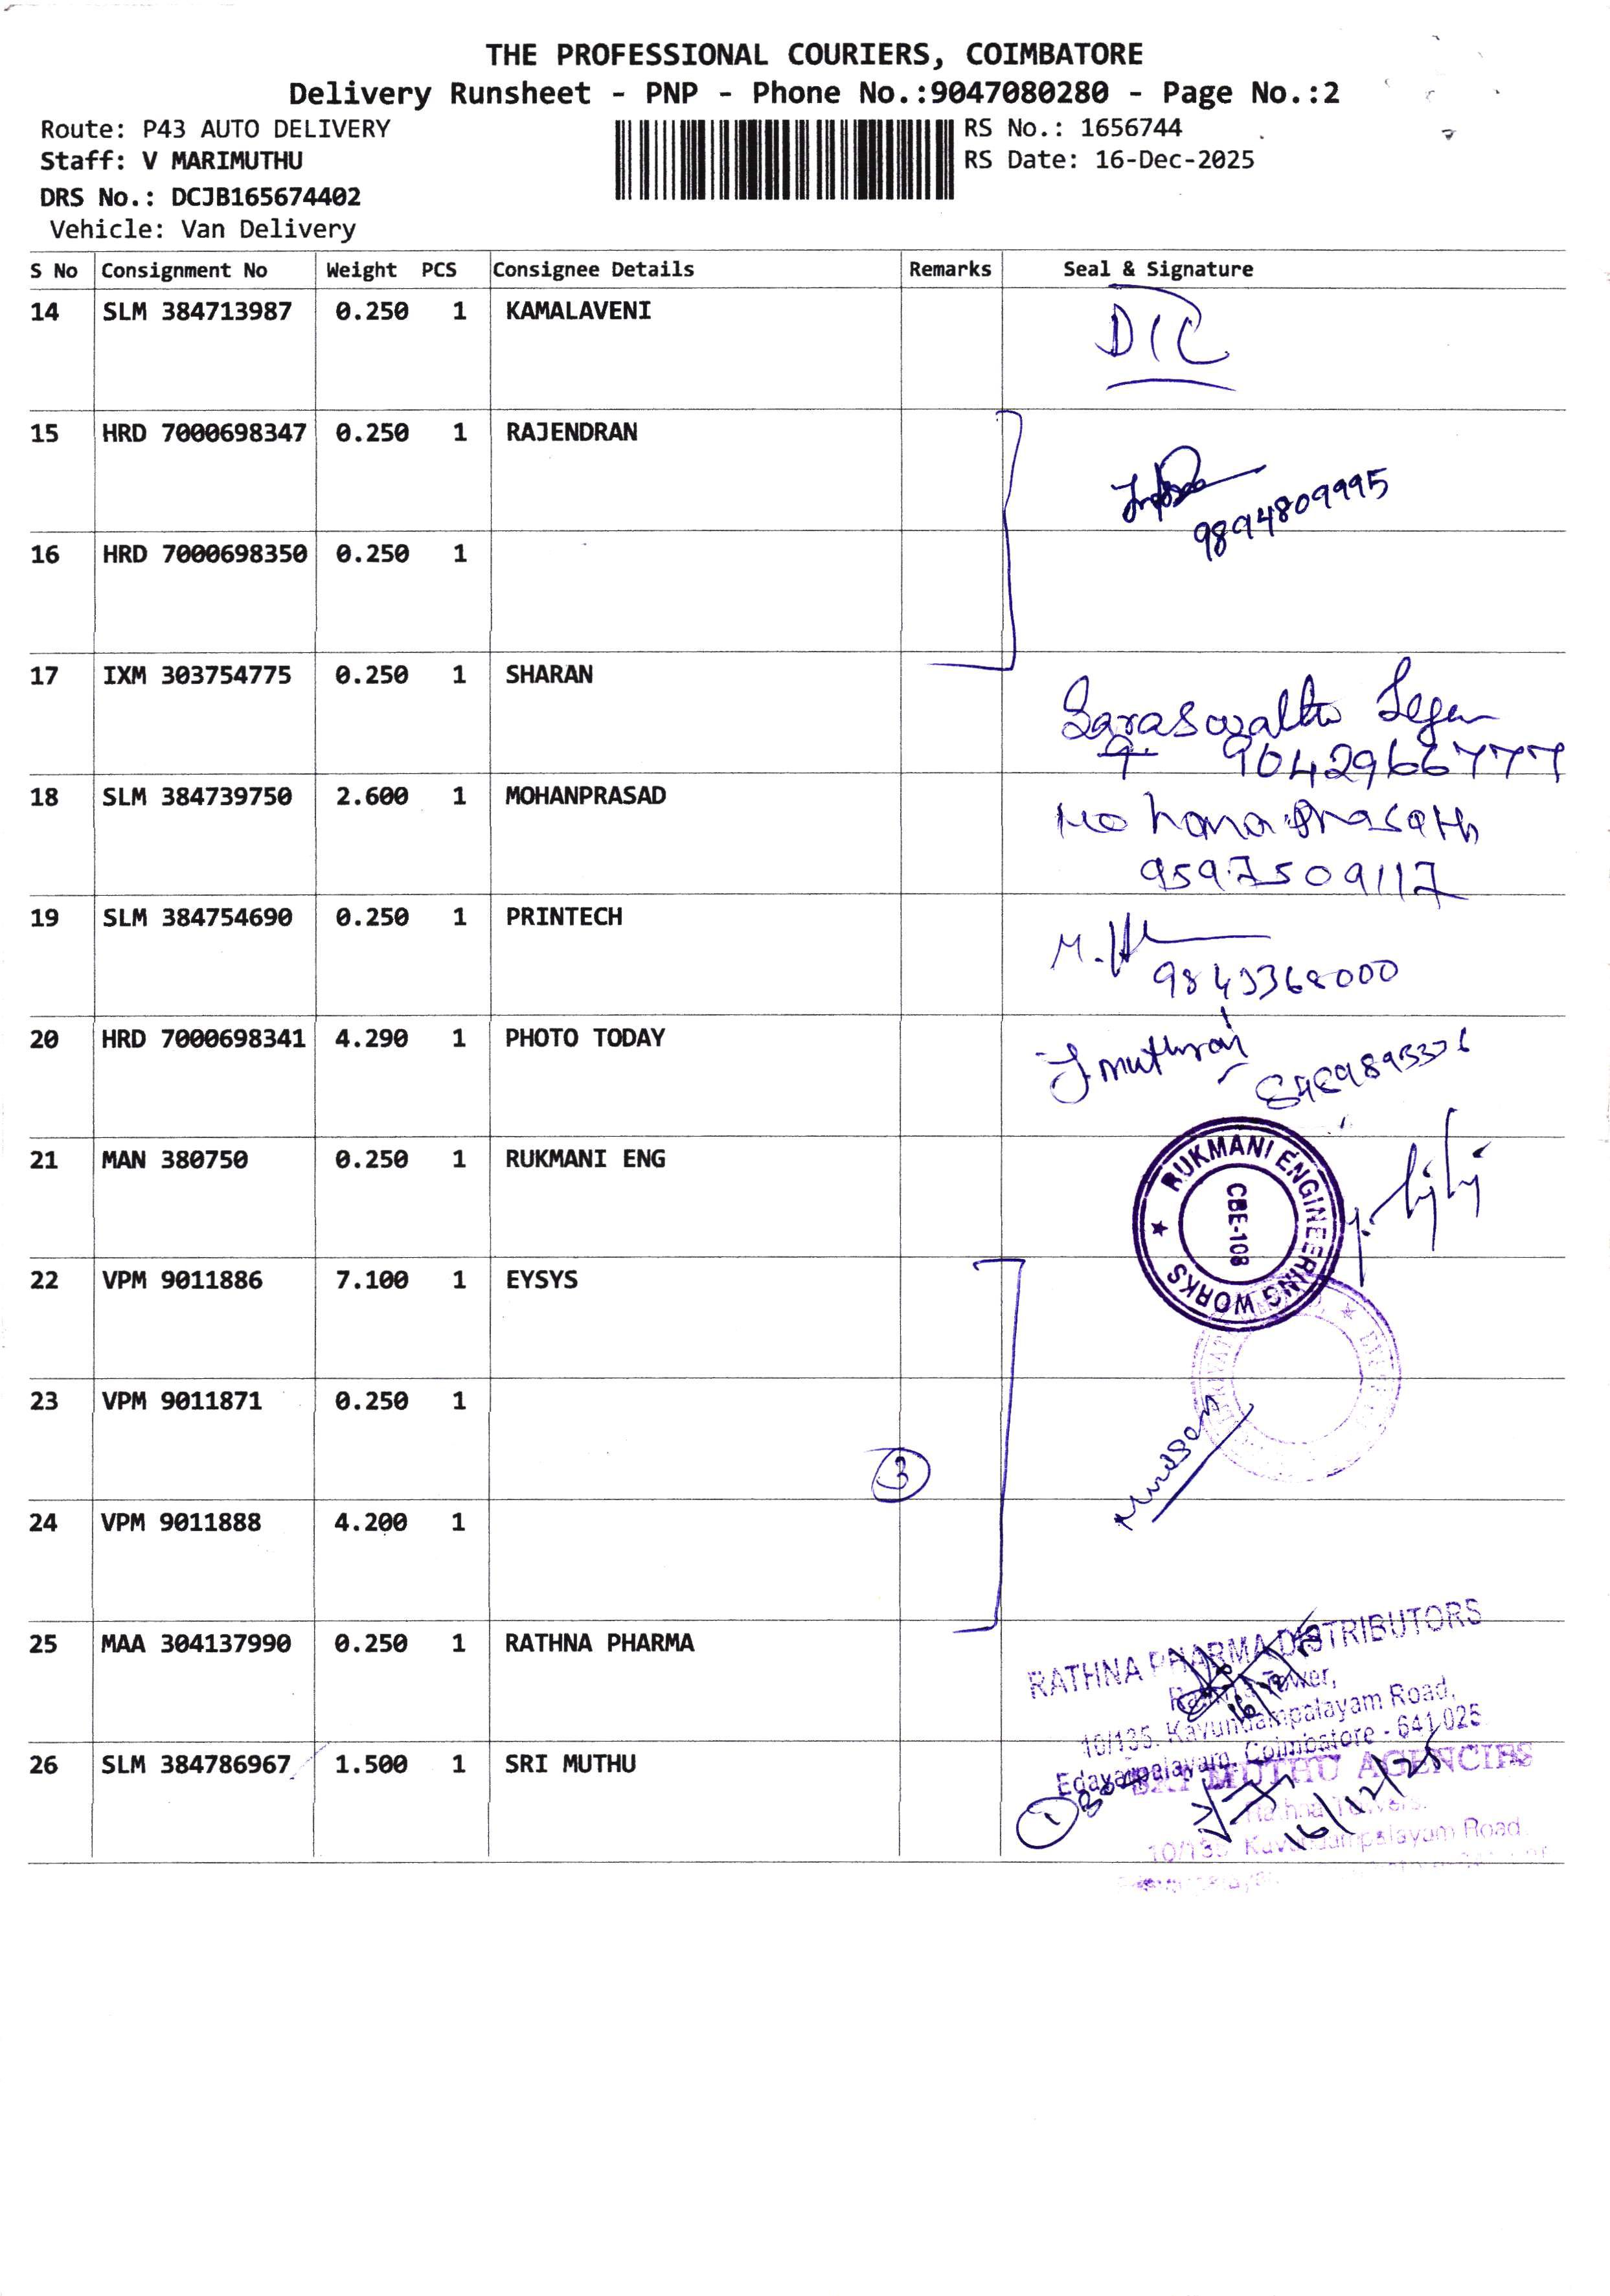 THE PROFESSIONAL COURIERS, COIMBATORE
Delivery Runsheet - PNP - Phone No.:9047080280 - Page No.:2
Route: P43 AUTO DELIVERY
RS No.: 1656744
Staff: V MARIMUTHU
RS Date: 16-Dec-2025
DRS No.: DCJB165674402
Vehicle: Van Delivery
S No Consignment No Weight PCS Consignee Details Remarks Seal & Signature
14 SLM 384713987 0.250 1 KAMALAVENI
D/C
15 HRD 7000698347 0.250 1 RAJENDRAN
9894809995
16 HRD 7000698350 0.250 1
17 IXM 303754775 0.250 1 SHARAN
9042966777
18 SLM 384739750 2.600 1 MOHANPRASAD
Mohanaprasath
9597509117
19 SLM 384754690 0.250 1 PRINTECH
M.
9843368000
20 HRD 7000698341 4.290 1 PHOTO TODAY
J muthuraj
21 MAN 380750 0.250 1 RUKMANI ENG
RUKMANI ENGINEERING WORKS
CBE-108
22 VPM 9011886 7.100 1 EYSYS
23 VPM 9011871 0.250 1
3
24 VPM 9011888 4.200 1
25 MAA 304137990 0.250 1 RATHNA PHARMA
RATHNA PHARMA DISTRIBUTORS
Rathna Tower,
10/135, Kavundampalayam Road,
Edayarpalayam, Coimbatore - 641 025
16/12
26 SLM 384786967 1.500 1 SRI MUTHU
SRI MUTHU AGENCIES
Rathna Towers,
10/135 Kavundampalayam Road
1
16/12/25